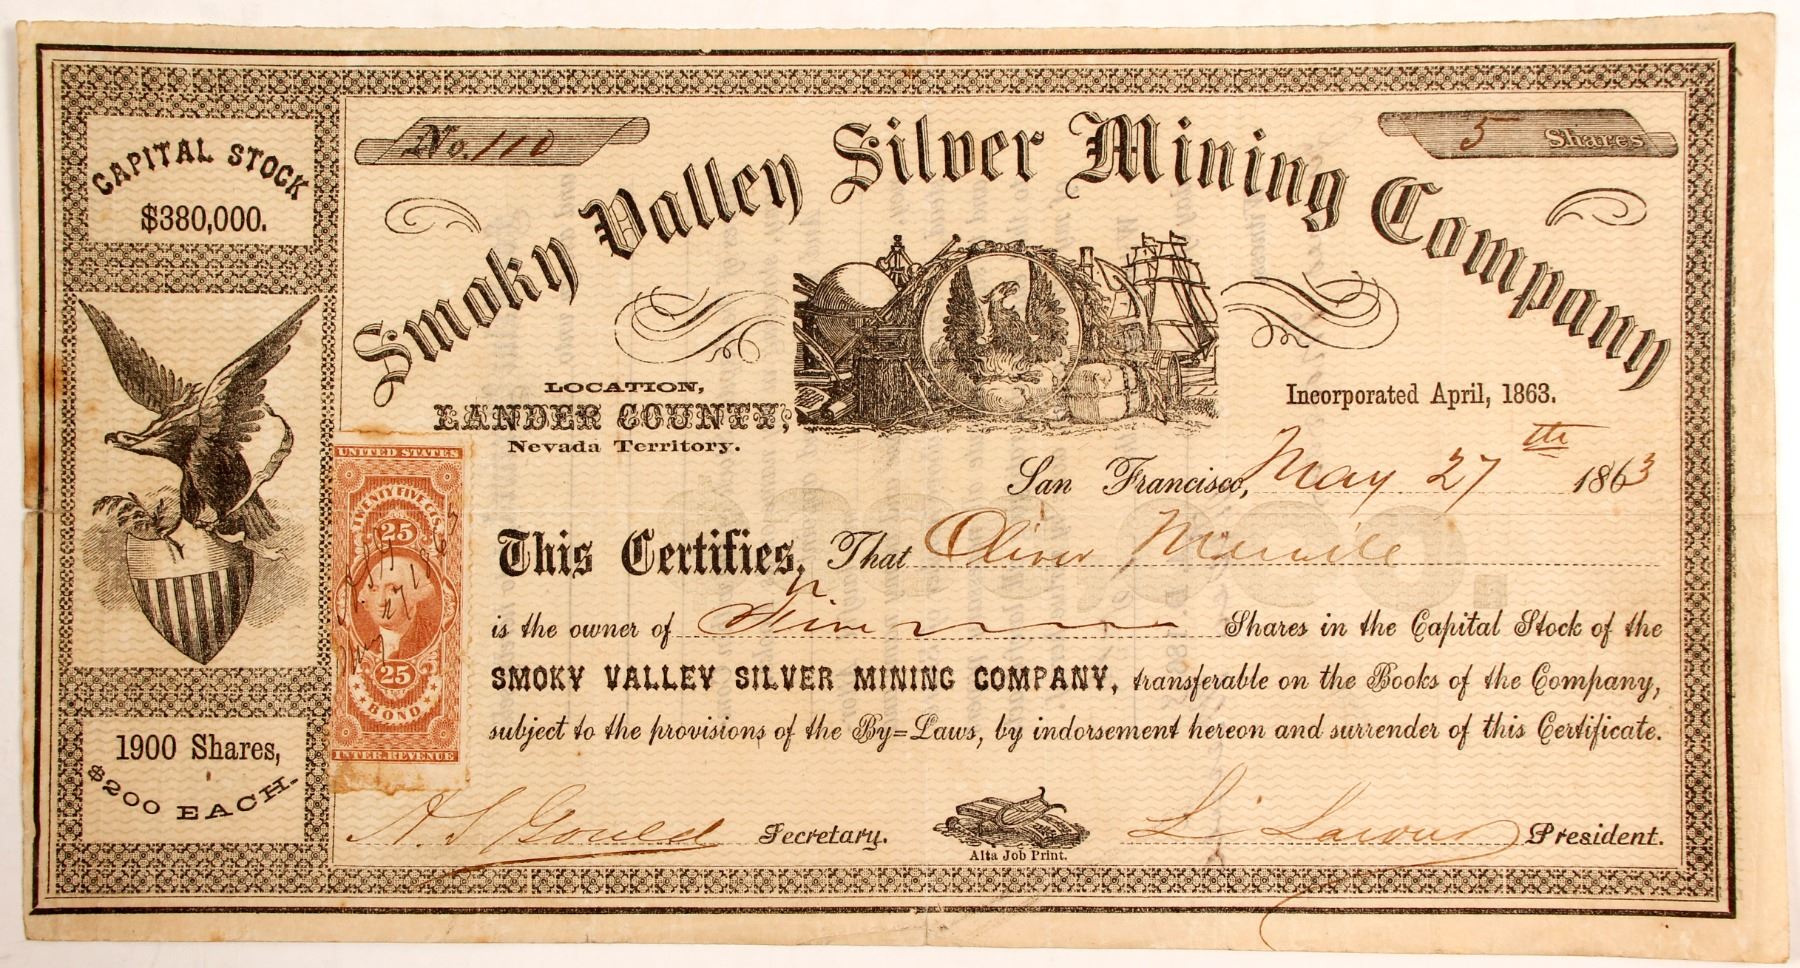 CAPITAL STOCK
$380,000.
1900 Shares,
$200 EACH.
No. 110
5 Shares
Smoky Valley Silver Mining Company
LOCATION,
LANDER COUNTY,
Nevada Territory.
Incorporated April, 1863.
San Francisco, May 27th 1863
This Certifies, That Oliver
is the owner of Five Shares in the Capital Stock of the
SMOKY VALLEY SILVER MINING COMPANY, transferable on the Books of the Company,
subject to the provisions of the By=Laws, by indorsement hereon and surrender of this Certificate.
UNITED STATES
TWENTY FIVE CTS.
25
May 27 1863
25
BOND
INTER. REVENUE
A S Gould Secretary.
Alta Job Print.
President.